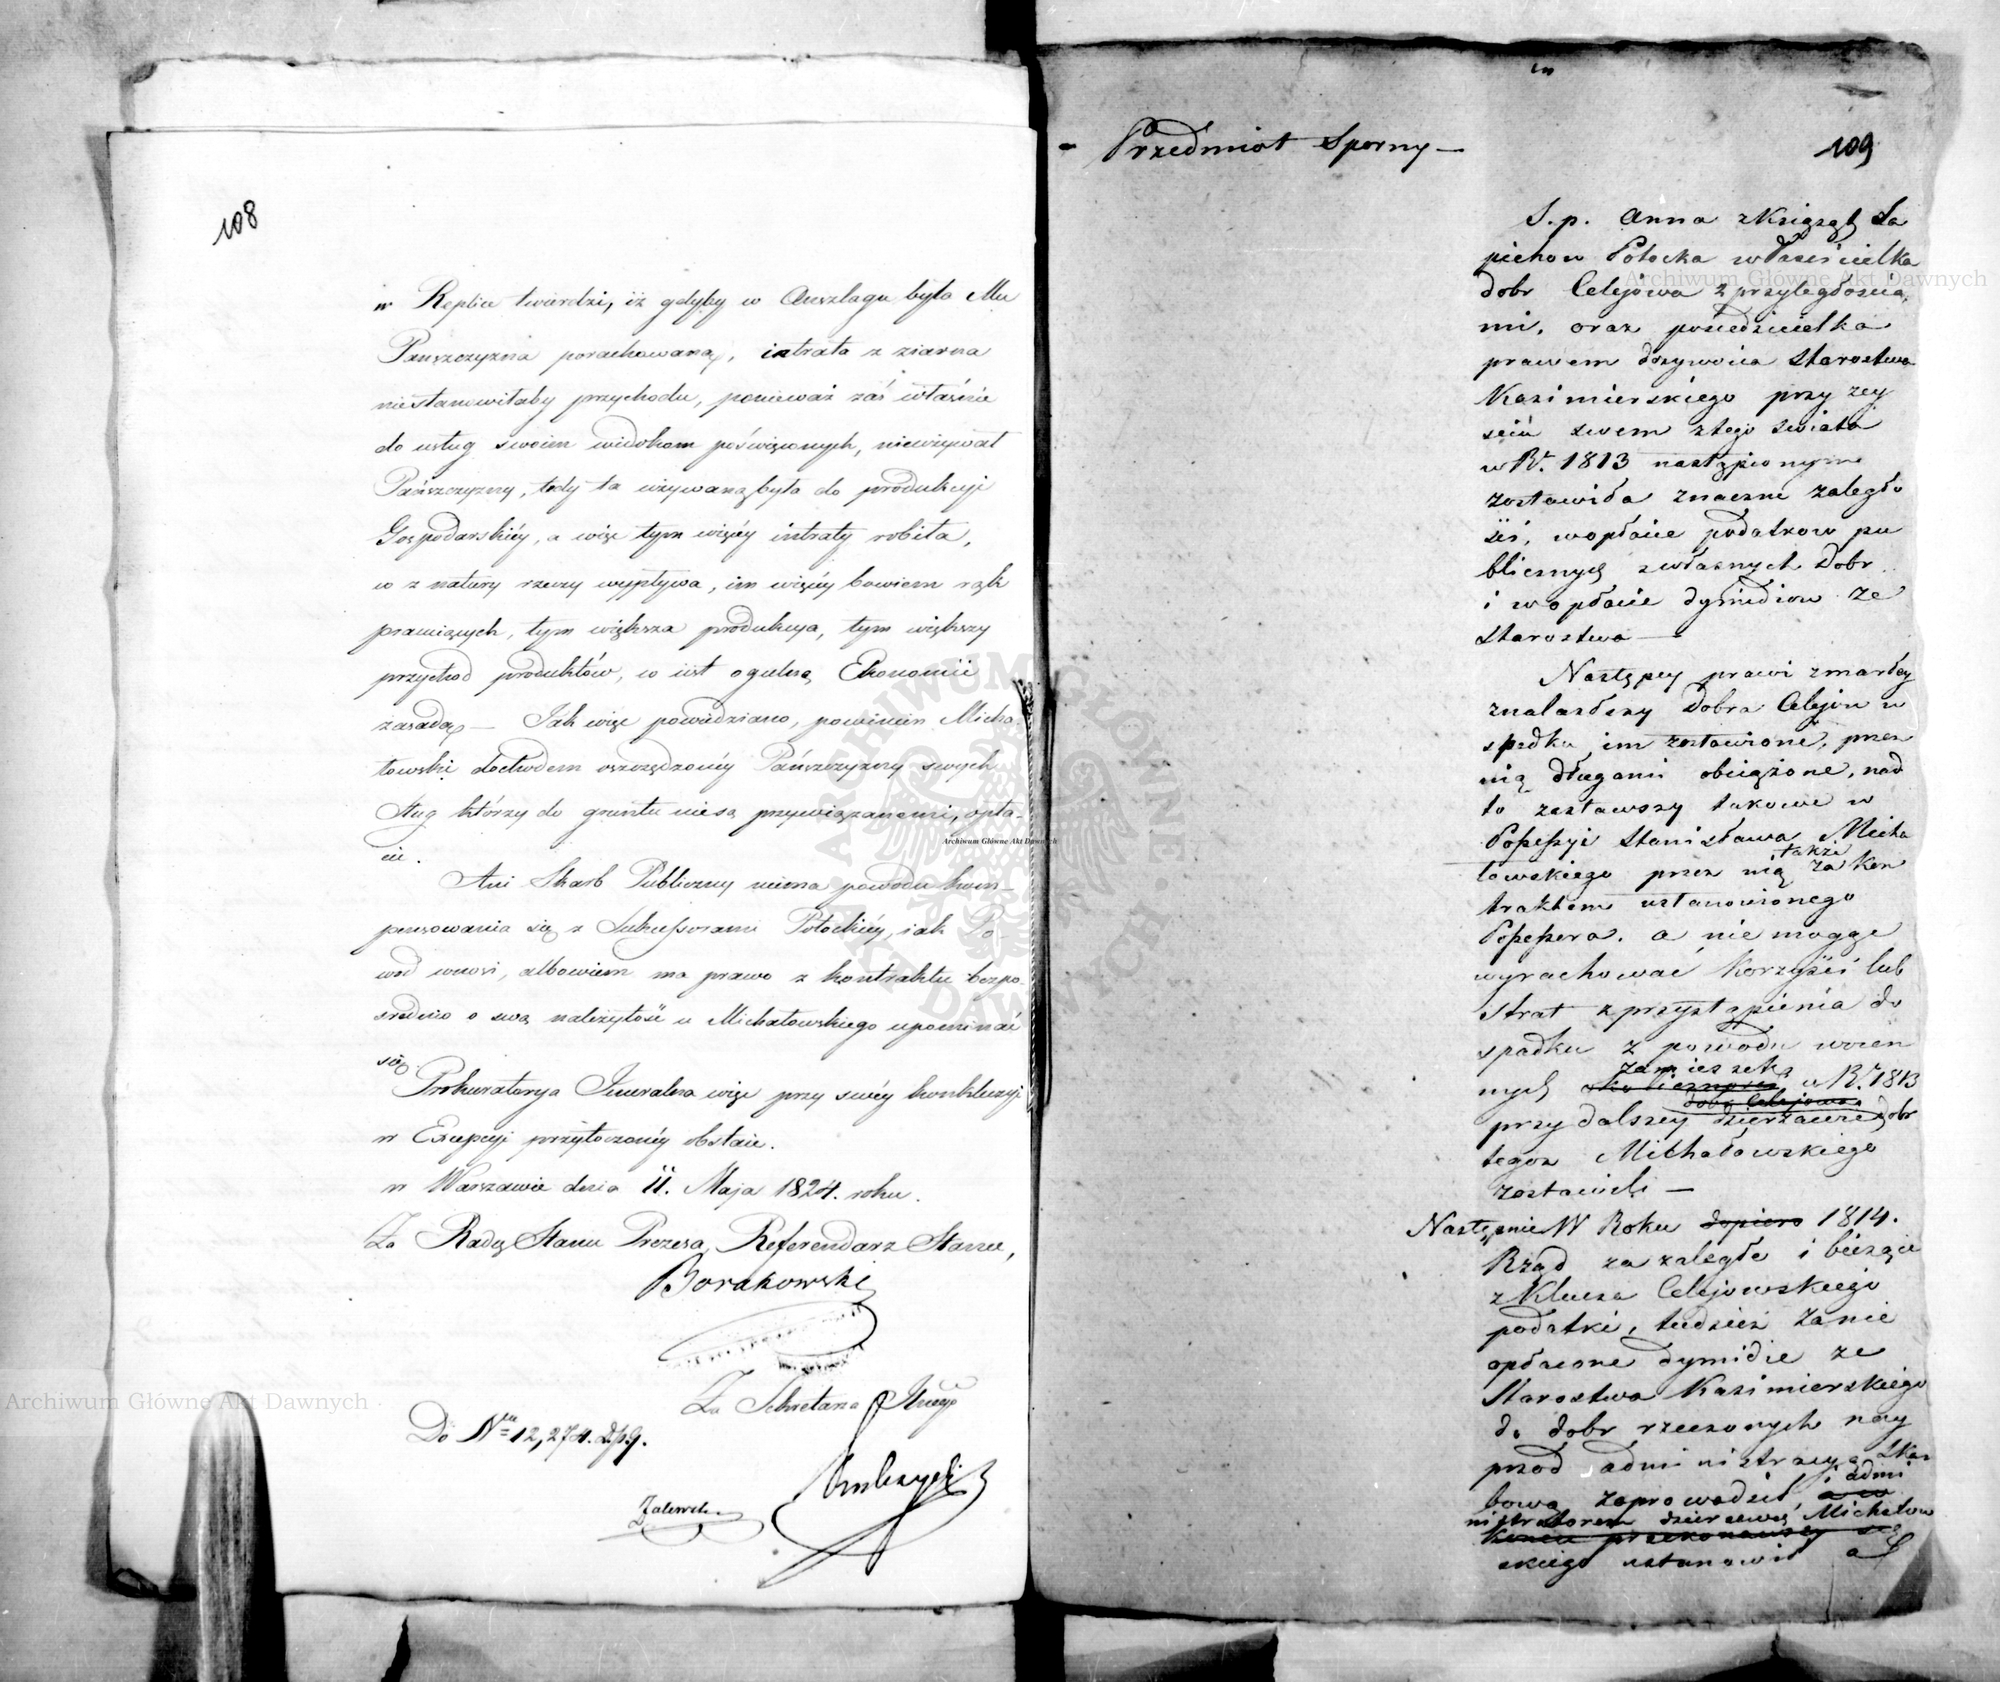 108
w Replice twierdzi, iż gdyby w Anszlagu była Mu
Pańszczyzna porachowaną, intrata z ziarna
niestanowiłaby przychodu, ponieważ zaś właśnie
do usług swoim widokom poświęconych, nieużywał
Pańszczyzny, tedy ta używaną była do produkcyi
Gospodarskiéy, a więc tym więcéy intraty robiła,
co z natury rzeczy wypływa, im więcéy bowiem rąk
pracuiących, tym większa produkcya, tym większy
przychod produktów, co iest ogulną Ekonomii
zasadą — Jak więc powiedziano, powinien Micha
łowski dochodem oszczędzonéy Pańszczyzny swych
sług którzy do gruntu niesą przywiązanemi, opła-
cić.
Ani Skarb Publiczny niema powodu kom-
pensowania się z Sukcessorami Potockiéy, iak Po-
wod wnosi, albowiem ma prawo z kontraktu bezpo-
srednio o swą należytość u Michałowskiego upominać
się.
Prokuratorya Jeneralna więc przy swéy konkluzyi
w Excepcyi przytoczonéy obstaie.
w Warszawie dnia 11. Maja 1824. roku.
Za Radcę Stanu Prezesa, Referendarz Stanu,
Borakowski
Za Sekretarza
Do Nru 12,274. Dpg.
Zalewski
109
- Przedmiot Sporny —
S. p. Anna z Xsiążąt Sa
piehow Potocka właścicielka
dobr Celejowa z przyległościa,
mi, oraz posiedzicielka
prawem dożywocia Starostwa
Kazimierskiego przy zey
sciu swem z tego świata
w Rr. 1813 nastąpionym
zostawiła znaczne zaległo
ści, w opłacie podatkow pu
blicznych z własnych Dobr
i w opłacie dymidiow ze
Starostwa —
Następcy prawi zmarłey
znalazłszy Dobra Celejow w
spadku im zostawione, przez
nią długami obciążone, nad
to zastawszy takowe w
Possessyi Stanisława Micha
łowskiego przez nią także za Kon
traktem ustanowionego
Possessora. a nie mogąc
wyrachować Korzyści lub
strat z przystąpienia do
spadku z powodu woien
nych zamieszek w Rr. 1813
przy dalszey dzierżawie dobr
tegoz Michałowskiego
zostawili —
Następnie W Roku dopiero 1814.
Rząd za zaległe i bieżące
z Klucza Celejowskiego
podatki, tudzież za nie
opłacone dymidie ze
Starostwa Kazimierskiego
do dobr rzeczonych nay
przod administracyą Skar
bową zaprowadził i admi
nistratorem dzierżawcę Michałow
Końcu przekonawszy się
skiego ustanowił a